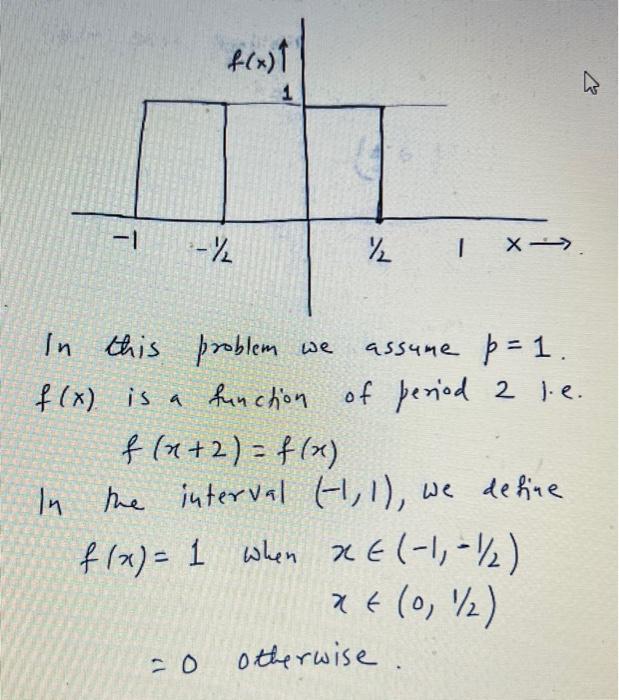 f(x)↑
1
-1 -½ ½ 1 x →
In this problem we assume p = 1.
f(x) is a function of period 2 i.e.
f(x+2) = f(x)
In the interval (-1, 1), we define
f(x) = 1 when x ∈ (-1, -½)
x ∈ (0, ½)
= 0 otherwise.